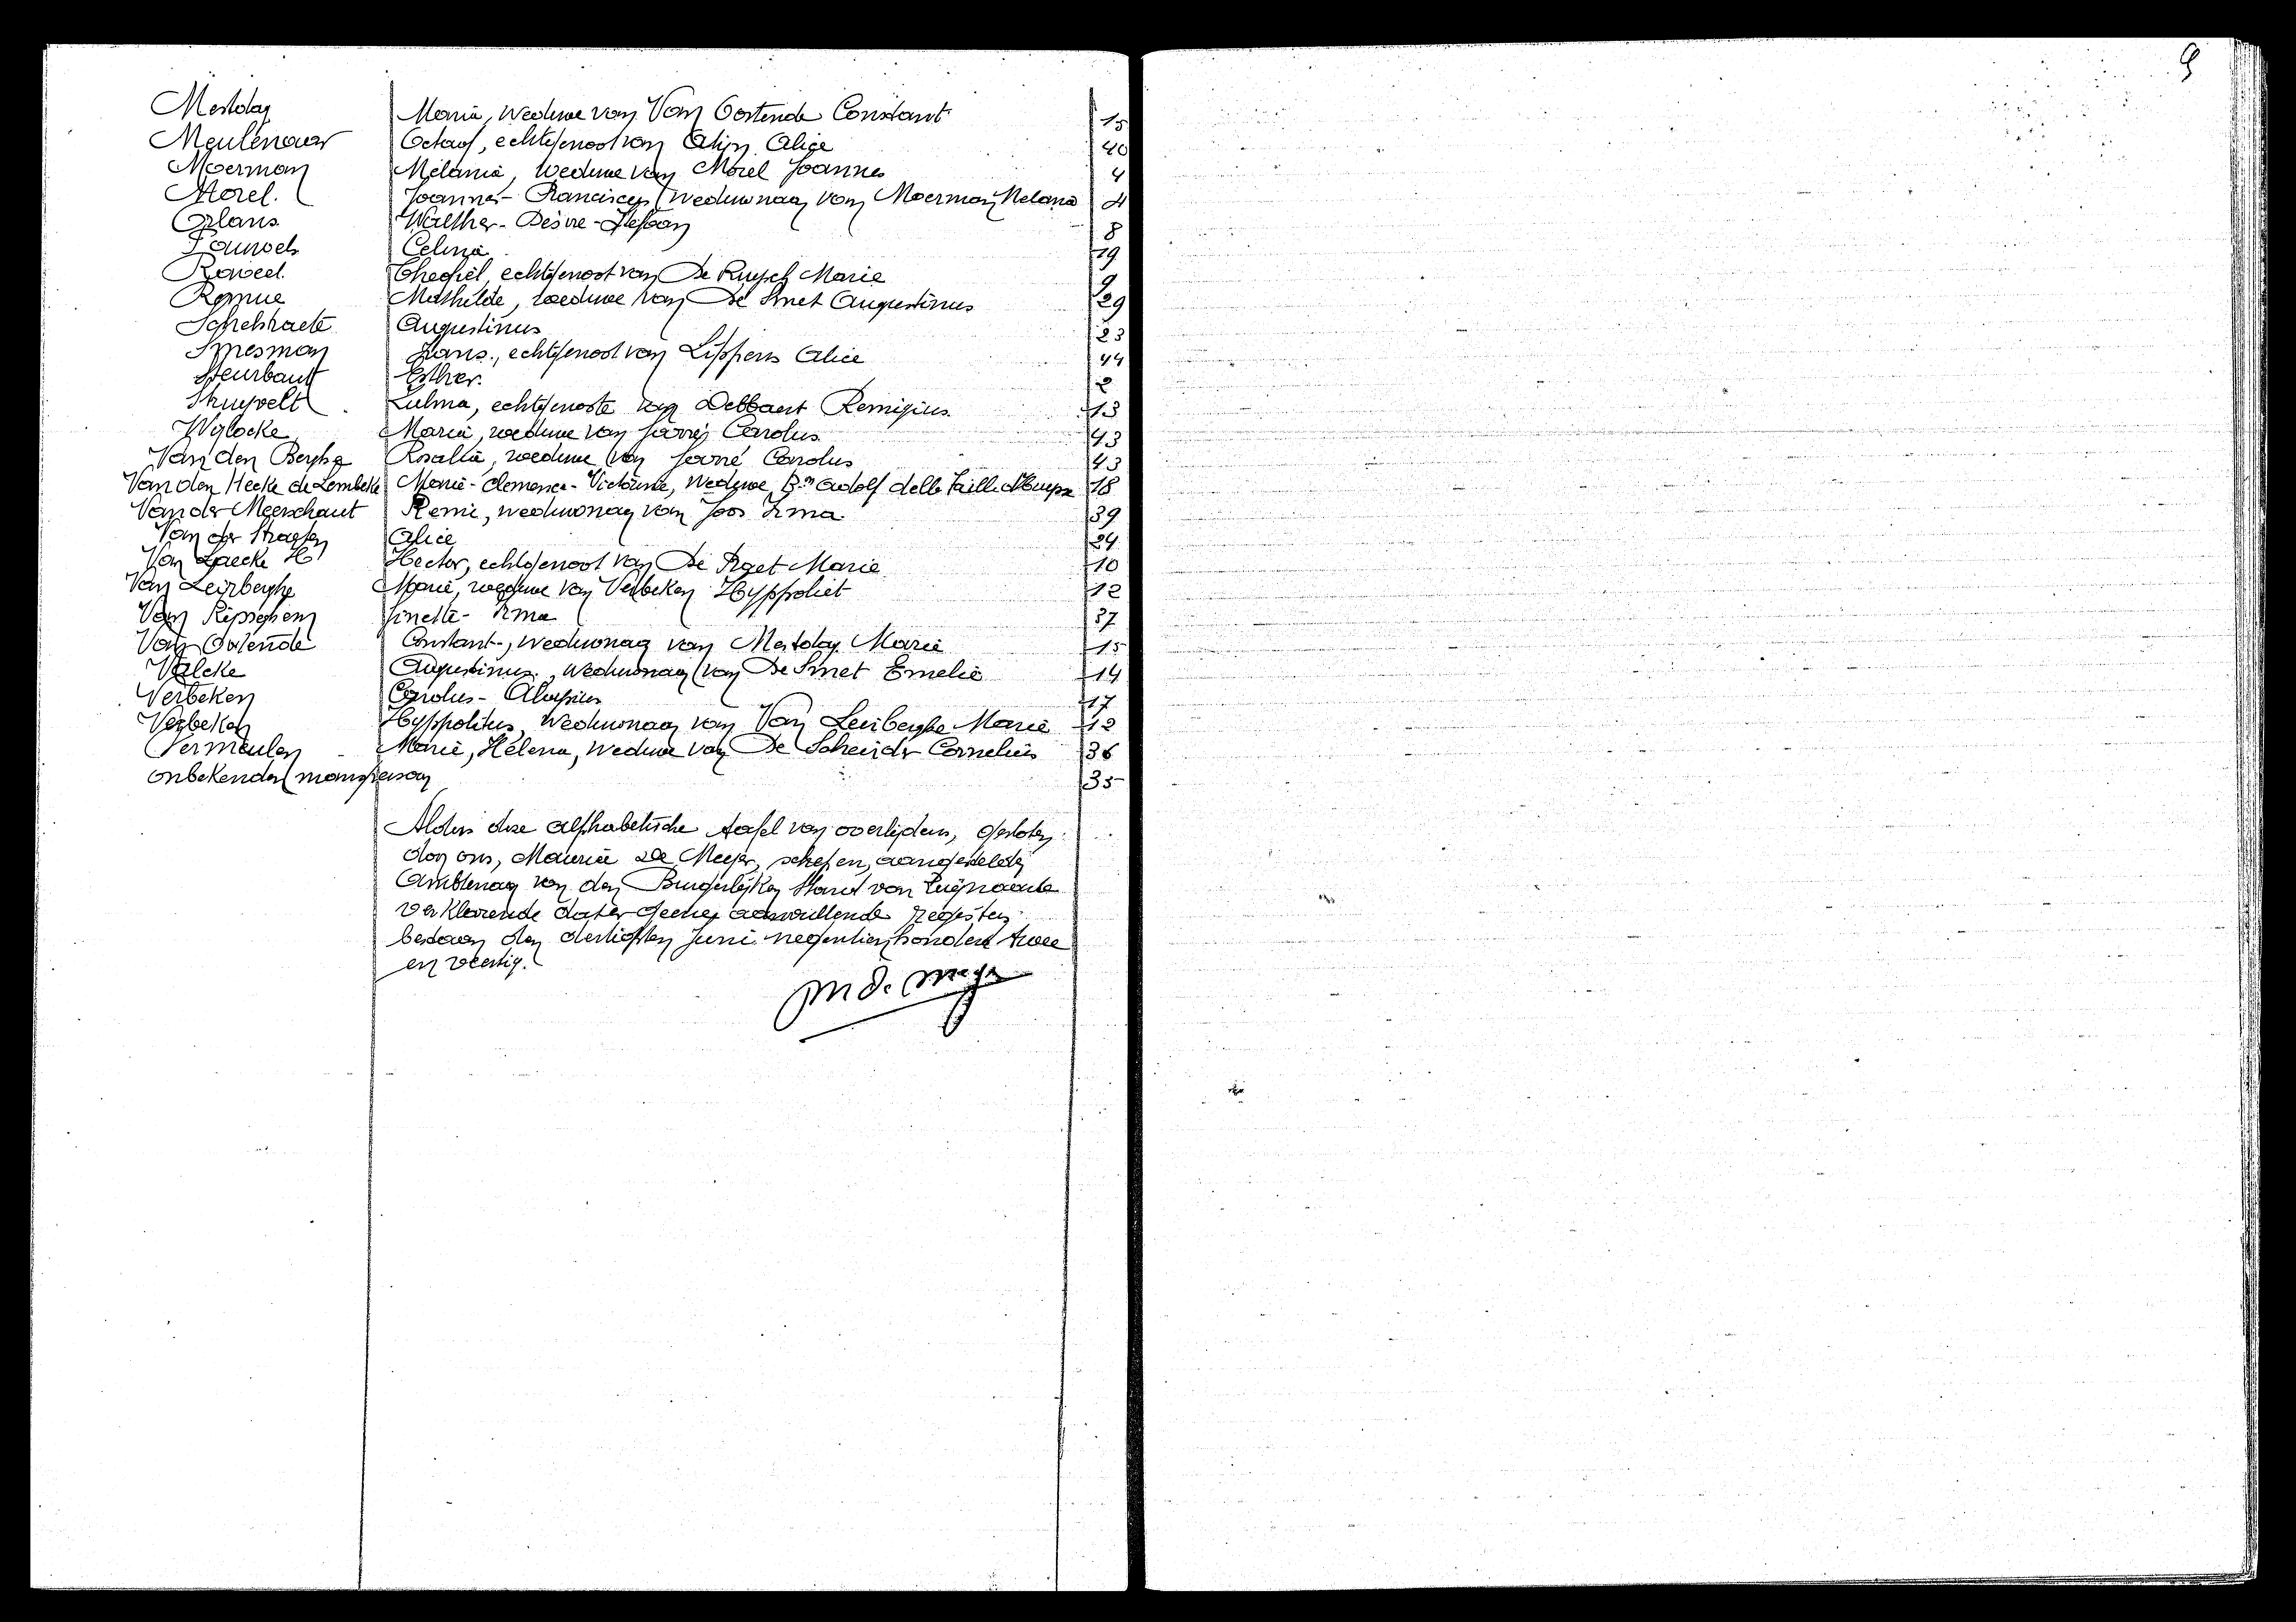 9
Mestdag Maria, weduwe van Van Oostende Constant 15
Meulenaar Octaaf, echtgenoot van Alin Alice 40
Moerman Melania, weduwe van Morel Joannes 4
Morel. Joannes-Franciscus weduwnaar van Moerman Melania 4
Orlans Walther-Desire-Stefaan 8
Pauwels Celina 19
Raweel. Theofiel, echtgenoot van De Ruysch Marie 9
Remue Mathilde, weduwe van De Smet Augustinus 29
Schelstraete Augustinus 23
Smesman Frans., echtgenoot van Lippens Alice 44
Steurbaut Esther. 2
Struyvelt Zulma, echtgenoote van Debbaut Remigius 13
Wylocke Maria, weduwe van Carolus 43
Van den Berghe Rosalia, weduwe van Carolus 43
Van den Hecke de Lembeke Marie-Clemence-Victorine, weduwe Bon Adolf della Faille d'Huysse 18
Van der Meerschaut Remi, weduwnaar van Joos Irma 39
Van der Straeten Alice 34
Van Laecke H Hector, echtgenoot van De Pryet Marie 10
Van Leirberghe Marie, weduwe van Verbeken Hyppoliet 12
Van Ripseghem Ginette-Irma 37
Van Ostende Constant-, weduwnaar van Mestdag Marie 15
Valcke Augustinus, weduwnaar van De Smet Emelie 14
Verbeken Carolus-Aloysius 17
Verbeken Hyppolitus, weduwnaar van Van Leirberghe Marie 12
Vermeulen Marie, Helena, weduwe van De Scheirder Cornelius 36
onbekende manspersoon 35
Aldus deze alphabetische tafel van overlijdens, gesloten
door ons, Maurice De Meyer, schepen, aangestelde
Ambtenaar van den Burgerlijken Stand van
verklarende dat er geene aanvullende registers
bestaan den dertigsten Juni negentienhonderd twee
en veertig.
M De Meyer